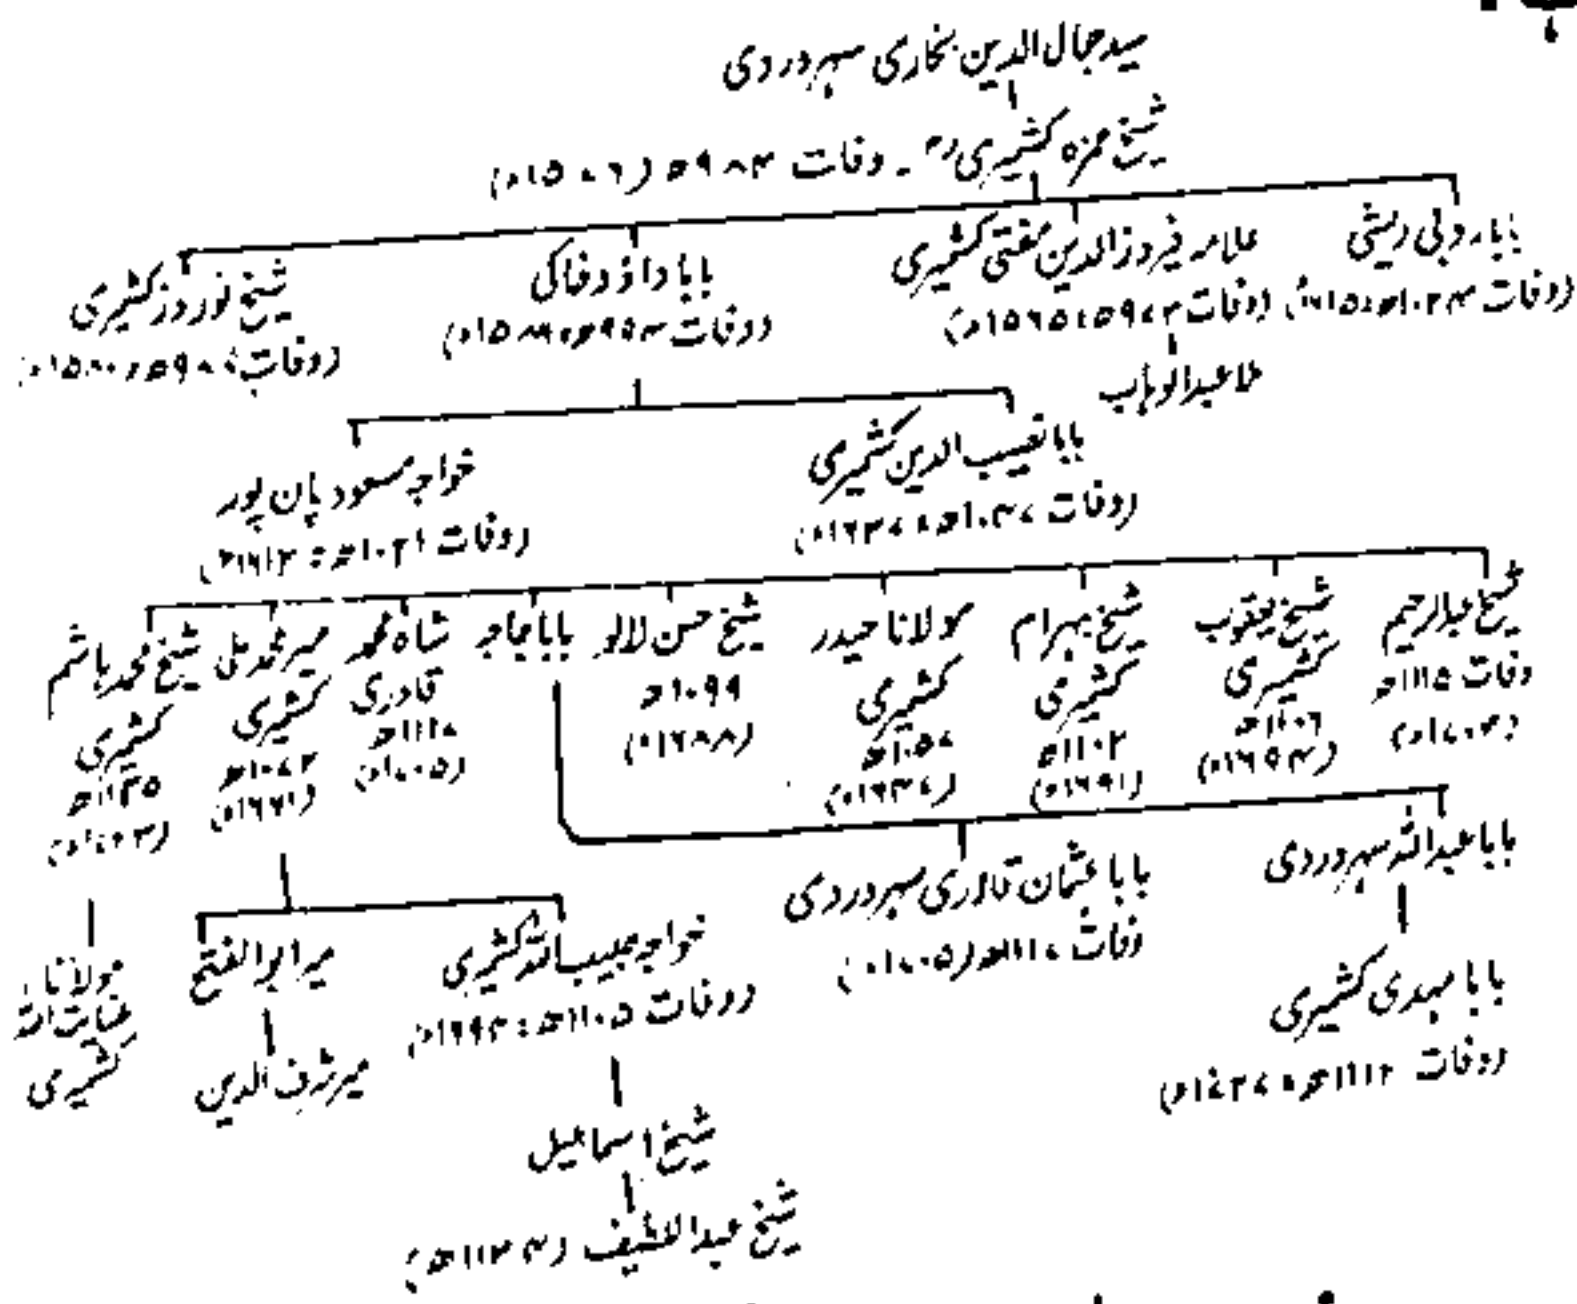 سید جمال الدین بخاری سہروردی
شیخ حمزہ کشمیریؒ ۔ وفات ۹۸۴ھ (۱۵۷۶ء)
بابا روپی ریشی
(وفات ۱۰۲۴ھ
علامہ فیروز الدین مفتی کشمیری
(وفات ۹۷۳ھ ۱۵۶۵ء)
ملا عبدالوہاب
بابا داؤد خاکی
(وفات
شیخ نوروز کشمیری
(وفات ۱۵۸۰ء)
بابا نصیب الدین کشمیری
(وفات ۱۰۴۷ھ ، ۱۶۳۷ء)
خواجہ مسعود پان پور
(وفات ۱۰۲۱ھ : ۱۶۱۲ء)
شیخ عبدالرحیم
وفات ۱۱۱۵ھ
(۱۷۰۳ء)
شیخ یعقوب
کشمیری
۱۱۰۶ھ
(۱۶۹۴ء)
شیخ بہرام
کشمیری
۱۱۰۲ھ
(۱۶۹۱ء)
مولانا حیدر
کشمیری
۱۰۵۷ھ
(۱۶۴۷ء)
شیخ حسن لالو
۱۰۹۹ھ
(۱۶۸۸ء)
بابا
شاہ محمد
قادری
۱۱۱۷ھ
(۱۷۰۵ء)
میر محمد علی
کشمیری
۱۰۷۲ھ
(۱۶۶۱ء)
شیخ محمد ہاشم
کشمیری
۱۱۳۵ھ
بابا عبداللہ سہروردی
بابا مہدی کشمیری
(وفات
بابا عثمان قادری سہروردی
وفات ۱۱۱۷ھ (۱۷۰۵ء)
خواجہ حبیب اللہ کشمیری
(وفات ۱۱۰۵ھ : ۱۶۹۳ء)
شیخ اسماعیل
شیخ عبداللطیف (۱۱۳۴ھ)
میر ابوالفتح
میر شرف الدین
مولانا
عنایت اللہ
کشمیری